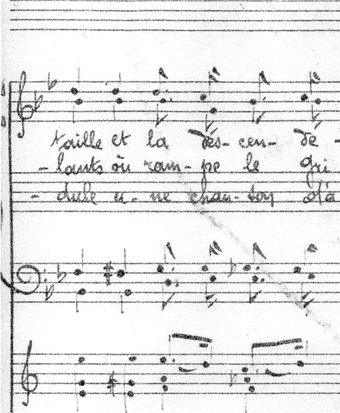 taille et la des-cen-dé-
-lants où ram-pe le gri
-dule u-ne chan-son d'a